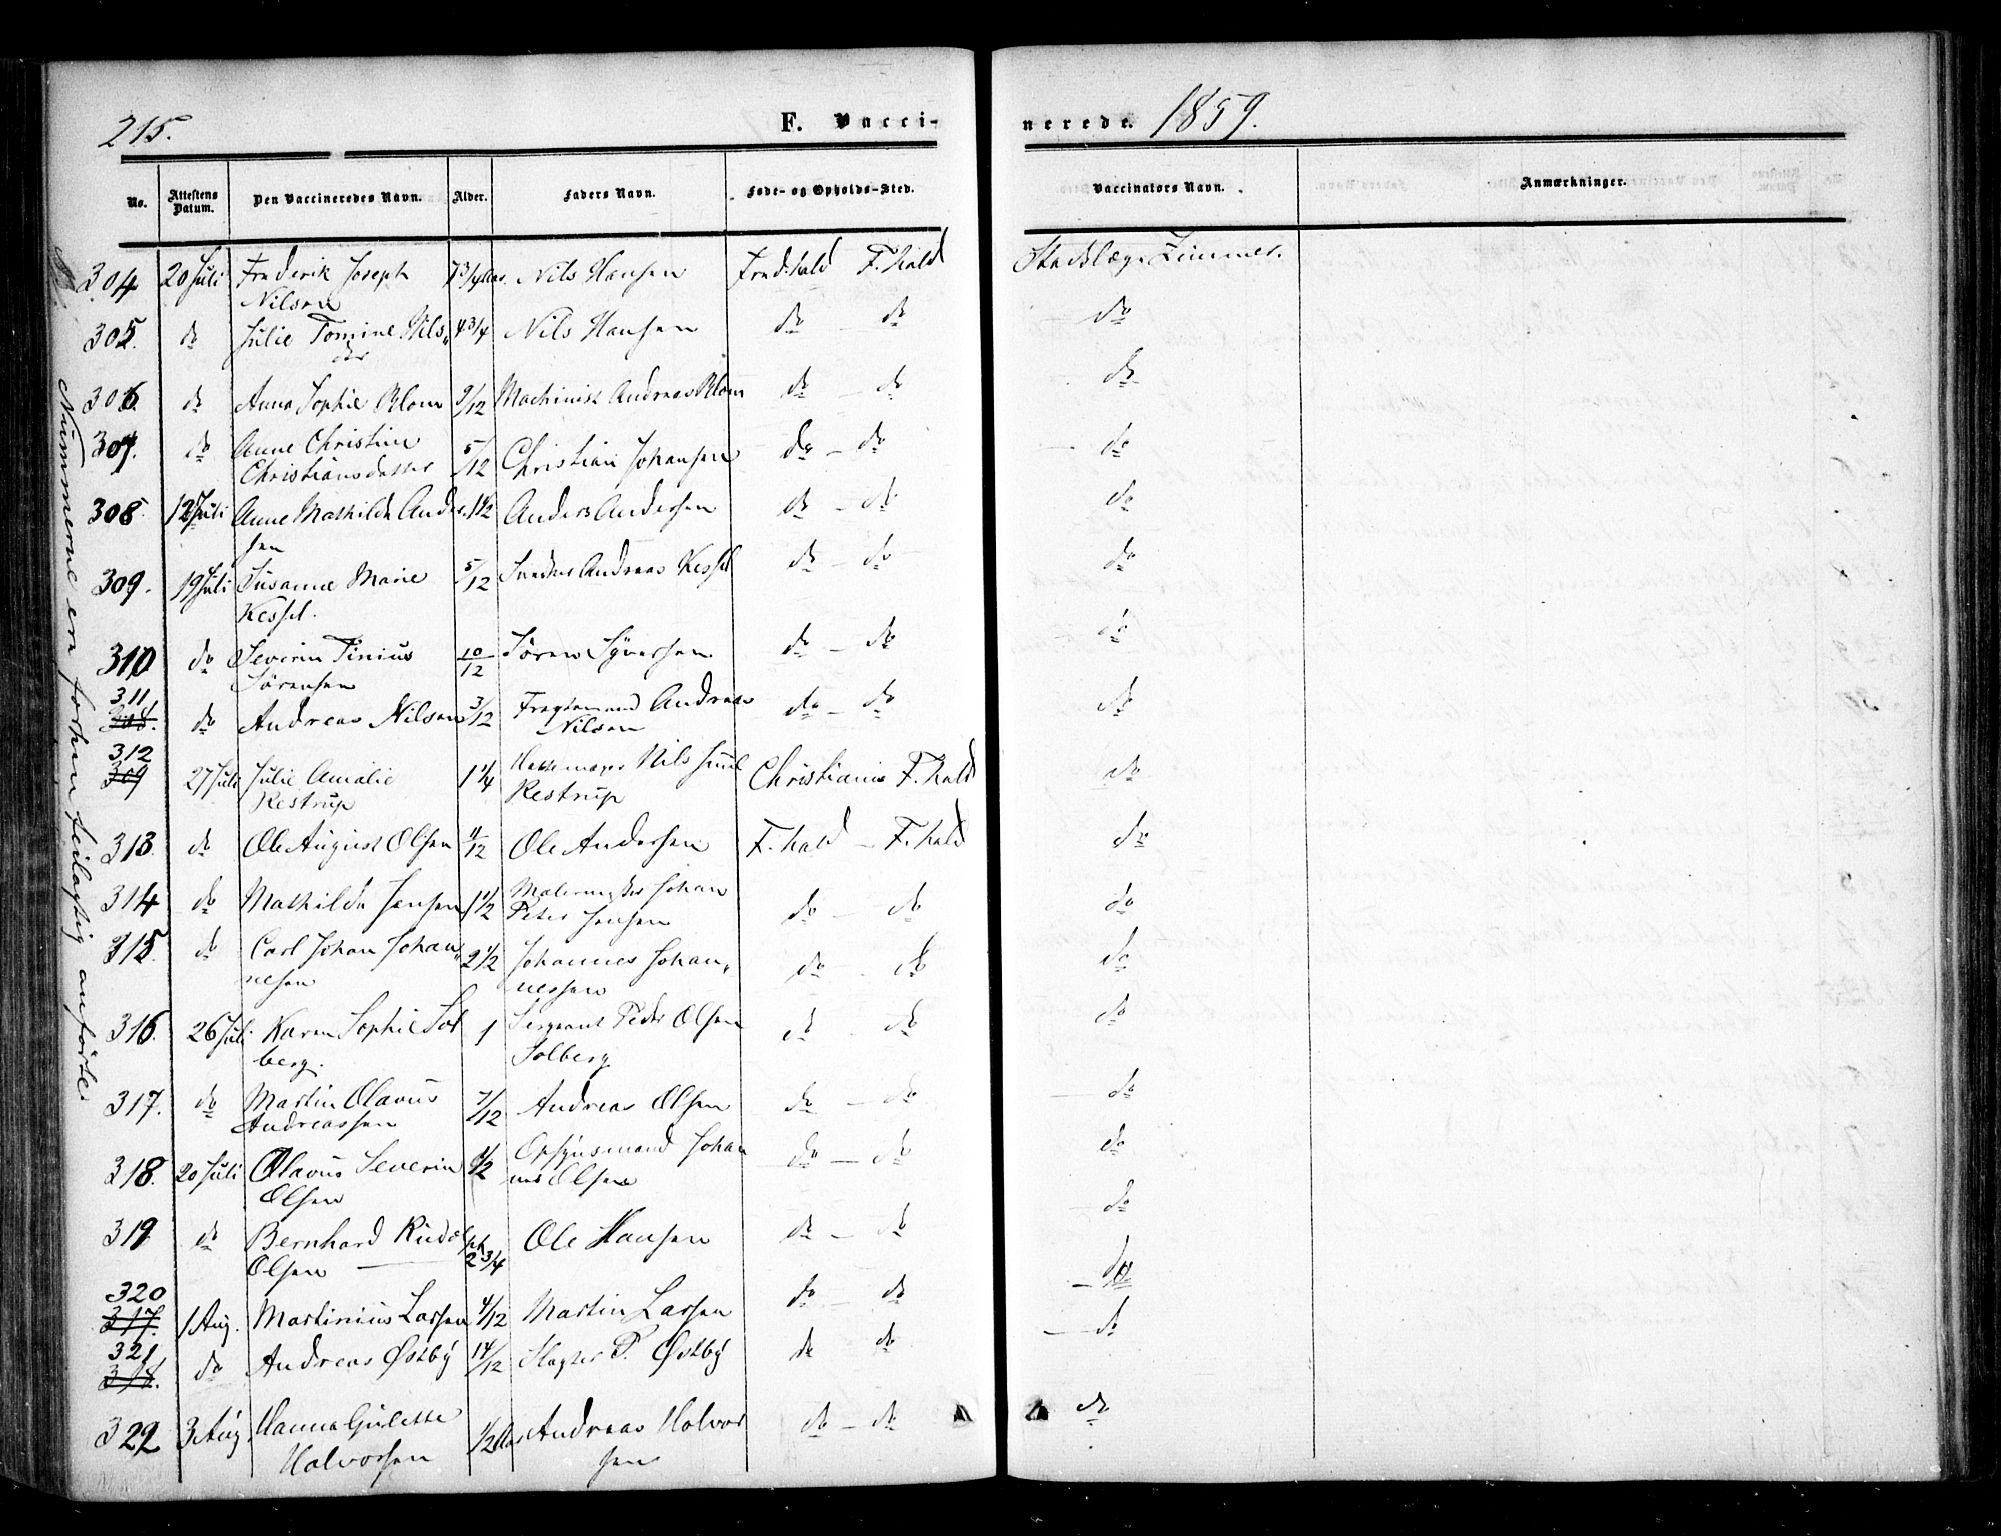 215.
F. Vacci- nerede. 1859.
No. Attestens Datum. Den Vaccineredes Navn. Alder. Faders Navn. Føde- og Opholds-Sted. Vaccinators Navn. Anmærkninger.
Nummerne ere forhen feilagtig anførte
304 20 Juli Frederik Joseph Nilsen 7 3/4 Aar. Nils Hansen Fredhald F.hald Stadslæge Zimmer.
305. do Julie Tomine Nils„ dtr 4 3/4 Nils Hansen do - do do
306. do Anna Sophie Blom 9/12 Machinist Andreas Blom do - do do
307. do Anne Christine Christiansdatter 5/12 Christian Johansen do - do do
308. 12 Juli Anne Mathilde Ander- sen 1 1/2 Anders Andersen do - do do
309. 19 Juli Susanne Marie Kessel. 5/12 Andreas Kessel do - do do
310 do Severin Tinius Sörensen 10/12 Sören Syversen do - do do
311 308. do Andreas Nilsen 3/12 Andreas Nilsen do - do do
312 309 27 Juli Julie Amalie Restrup 1 1/4 Nils Restrup Christiania F.hald do
313. do Ole August Olsen 11/12 Ole Andersen F.hald - F.hald do
314 do Mathilde Jensen 1 1/2 Malermester Johan Peter Jensen do - do do
315. do Carl Johan Johan„ nesen 2 1/2 Johannes Johan„ nessen do - do do
316. 26 Juli Karen Sophie Sol berg. 1 Sergeant Peder Olsen Solberg do do do
317. do Martin Olavus Andreassen 7/12 Andreas Olsen do - do do
318. 20 Juli Olavus Severin Olsen 1/2 Opsynsmand Johan nes Olsen do - do do
319 do Bernhard Rudol ph Olsen 2 3/4 Ole Hansen do - do do
320 317. 1 Aug. Martinius Larsen 4/12 Martin Larsen do - do do
321 318. do Andreas Østby 14/12 Slagter P. Østby do do do
322 3 Aug Hanna Gulette Halvorsen 1/2 Aar Andreas Halvor sen do - do do